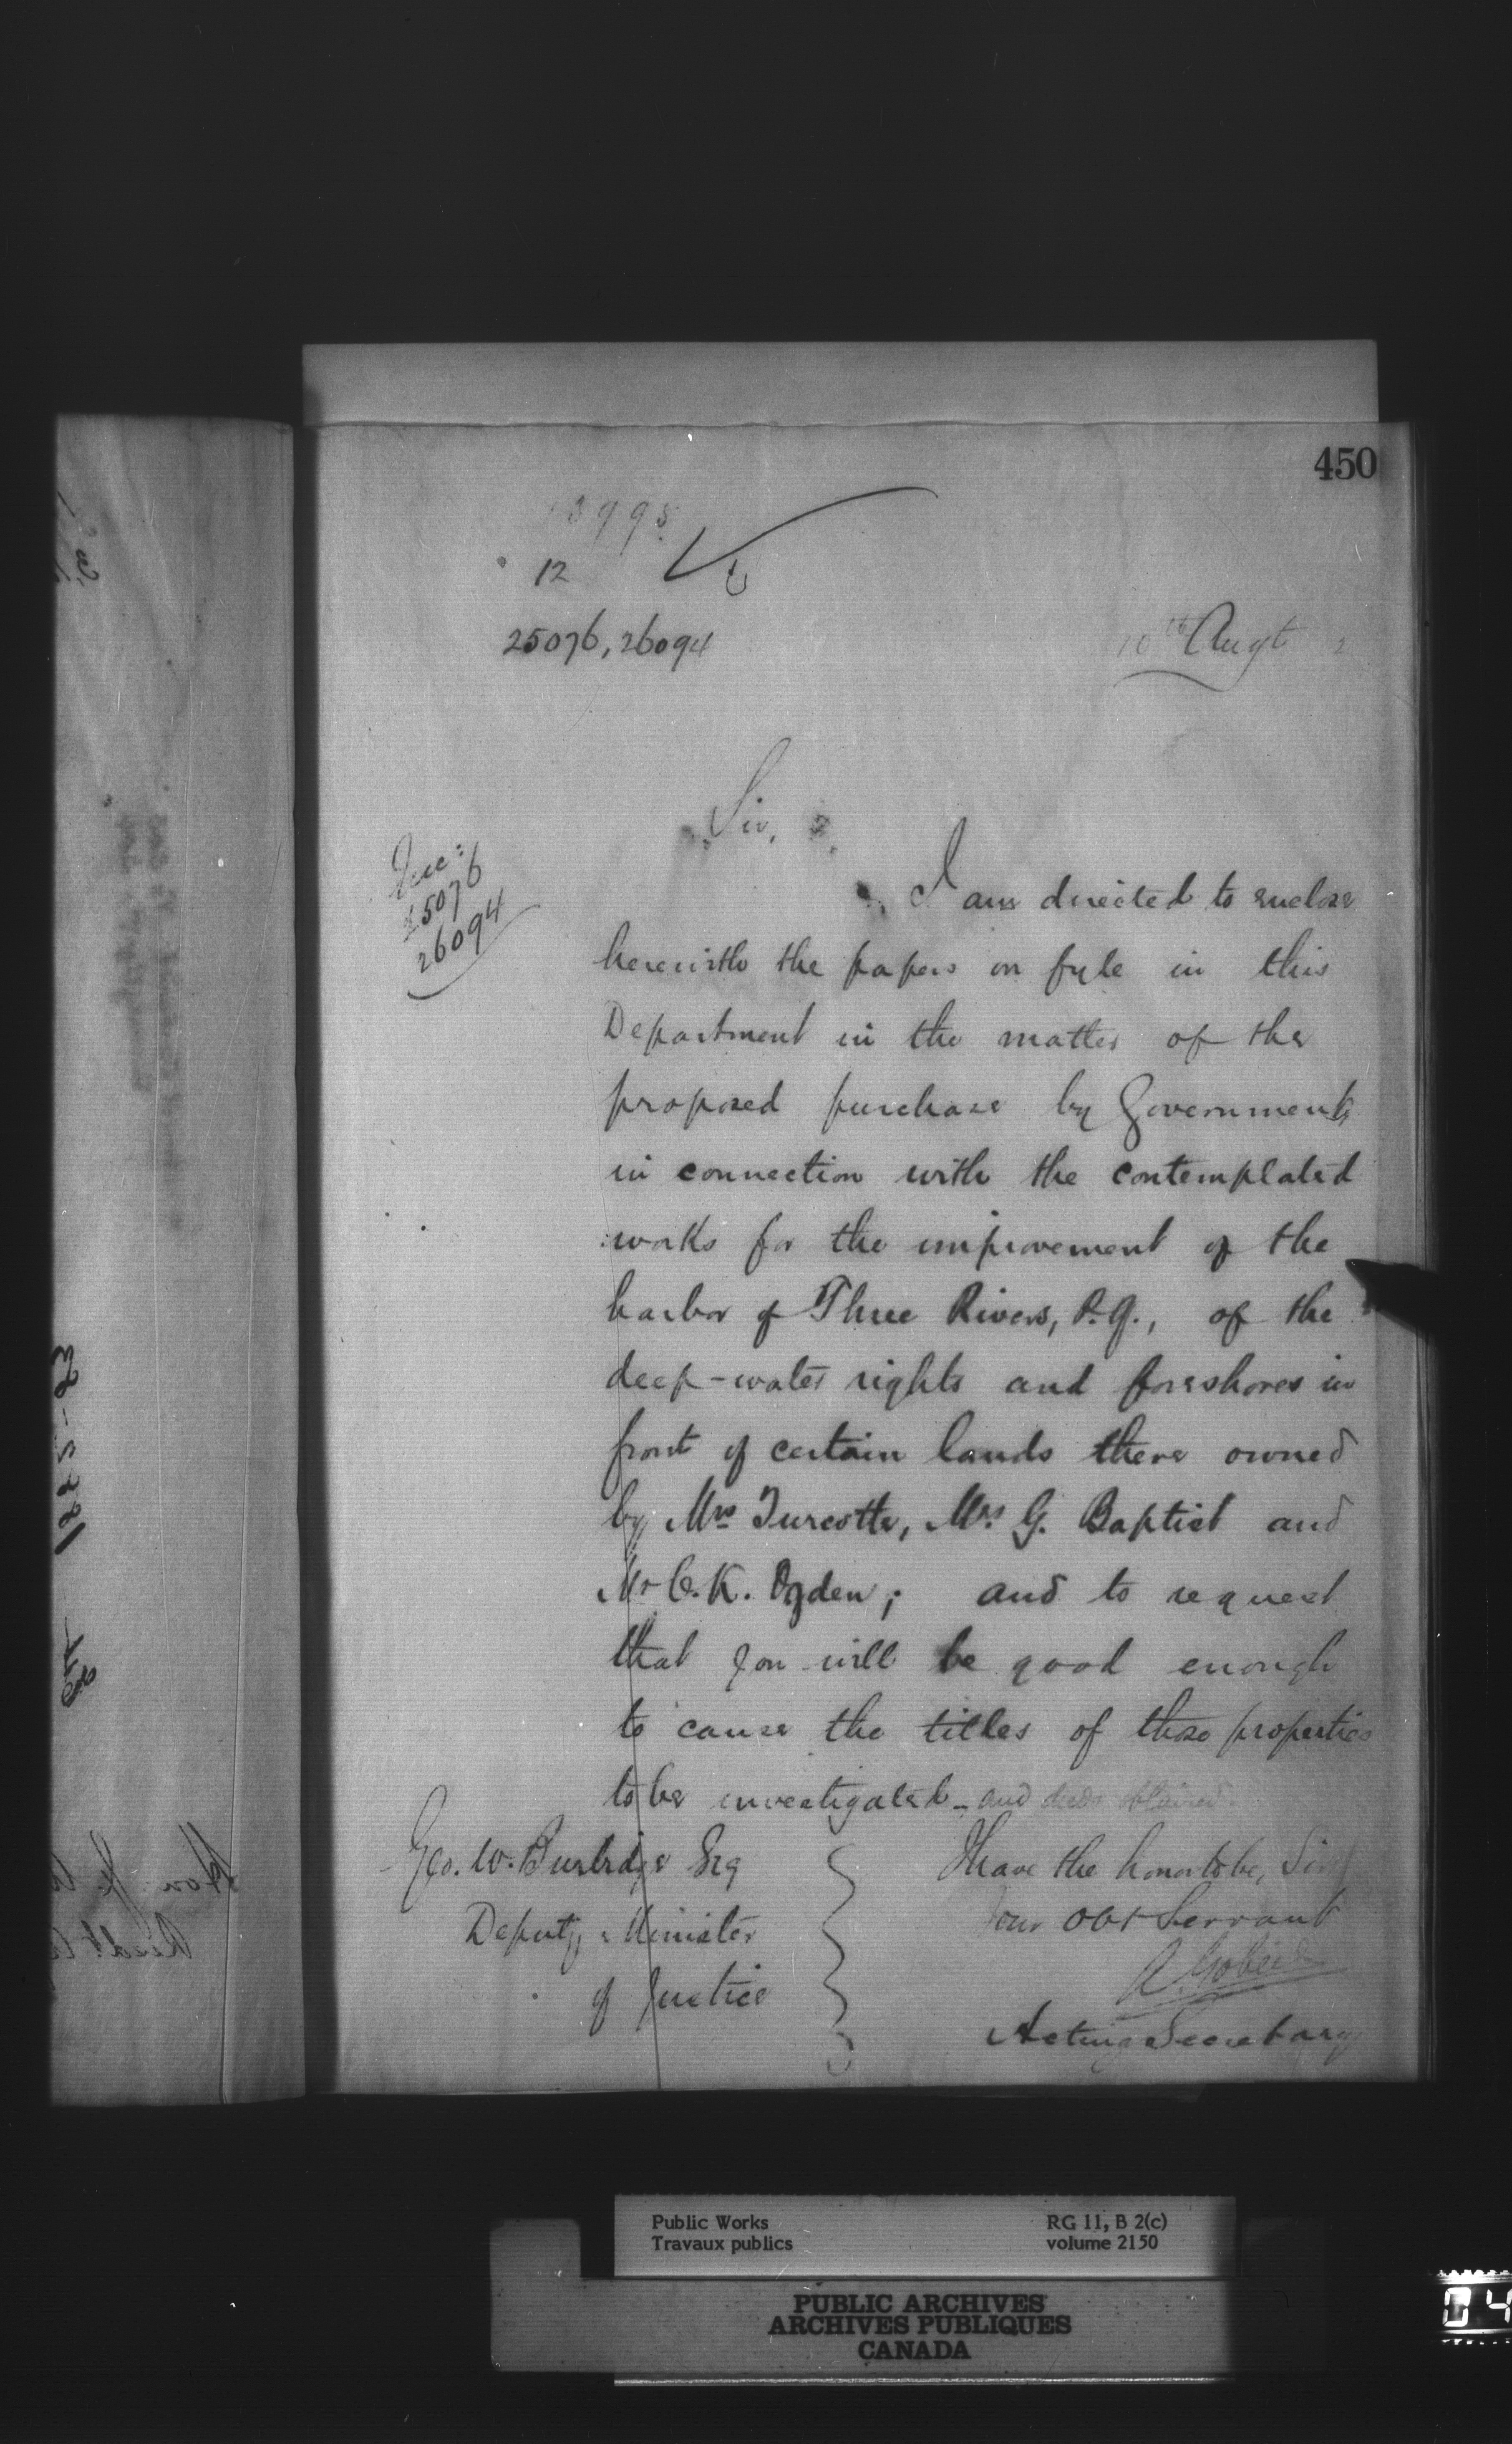 450
13995
12
25076, 26094
10th Augt 2
Sir,
Inc:
25076
26094
I am directed to enclose
herewith the papers on fyle in this
Department in the matter of the
proposed purchase by Government,
in connection with the contemplated
works for the improvement of the
harbor of Three Rivers, P.Q., of the
deep-water rights and foreshores in
front of certain lands there owned
by Mrs Turcotte, Mrs G. Baptist and
Mr C. K. Ogden; and to request
that you will be good enough
to cause the titles of these properties
to be investigated - and deeds obtained.
Geo. W. Burbidge Esq
Deputy Minister
of Justice
I have the honor to be, Sir,
Your Obt Servant
A. Gobeil
Acting Secretary
Public Works
Travaux publics
RG 11, B 2(c)
volume 2150
PUBLIC ARCHIVES
ARCHIVES PUBLIQUES
CANADA
04